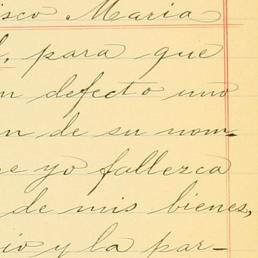 sco Maria
, para que
n defecto uno
n de su nom-
e yo fallezca
de mis bienes,
io y la par-